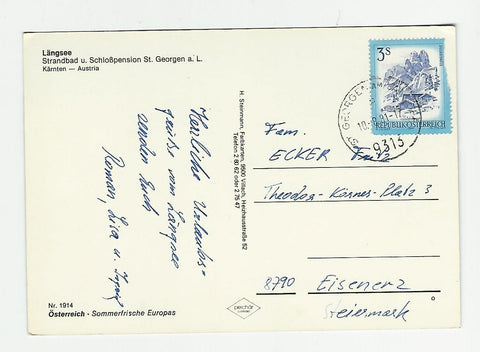 Längsee
Strandbad u. Schloßpension St. Georgen a. L.
Kärnten — Austria
Herzliche Urlaubs-
grüße vom Längsee
senden Euch
Roman, Lisa u.
H. Steinmann, Farbkarten, 9500 Villach, Heizhausstraße 52
Telefon 2 80 62 oder 2 75 47
3S
REPUBLIK ÖSTERREICH
ST. GEORGEN AM
9313
Fam.
ECKER Fritz
Theodor-Körner-Platz 3
8790 Eisenerz
Steiermark
Nr. 1914
Österreich - Sommerfrische Europas